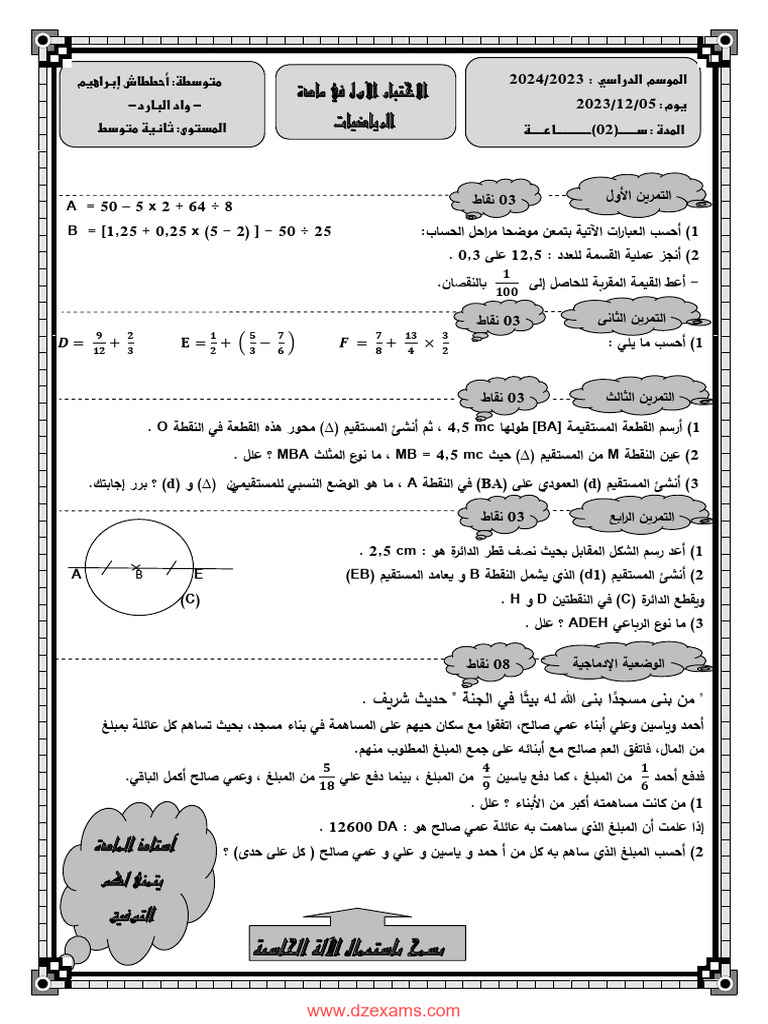 الموسم الدراسي : 2024/2023
يوم: 2023/12/05
المدة : ســـ(02)ـــــــاعــة
الاختبار الأول في مادة
الرياضيات
متوسطة: أحططاش إبراهيم
– واد البارد–
المستوى: ثانية متوسط
التمرين الأول
03 نقاط
A = 50 – 5 x 2 + 64 ÷ 8
1) أحسب العبارات الآتية بتمعن موضحا مراحل الحساب:
B = [1,25 + 0,25 x (5 – 2) ] – 50 ÷ 25
2) أنجز عملية القسمة للعدد : 12,5 على 0,3 .
– أعط القيمة المقربة للحاصل إلى 1/100 بالنقصان.
التمرين الثانى
03 نقاط
1) أحسب ما يلي :
D = 9/12 + 2/3 E = 1/2 + (5/3 – 7/6) F = 7/8 + 13/4 × 3/2
التمرين الثالث
03 نقاط
1) أرسم القطعة المستقيمة [BA] طولها 4,5 mc ، ثم أنشئ المستقيم (∆) محور هذه القطعة في النقطة O .
2) عين النقطة M من المستقيم (∆) حيث MB = 4,5 mc ، ما نوع المثلث MBA ؟ علل .
3) أنشئ المستقيم (d) العمودي على (BA) في النقطة A ، ما هو الوضع النسبي للمستقيمين (∆) و (d) ؟ برر إجابتك.
التمرين الرابع
03 نقاط
1) أعد رسم الشكل المقابل بحيث نصف قطر الدائرة هو : 2,5 cm .
2) أنشئ المستقيم (d1) الذي يشمل النقطة B و يعامد المستقيم (EB)
ويقطع الدائرة (C) في النقطتين D و H .
3) ما نوع الرباعي ADEH ؟ علل .
A B E
(C)
الوضعية الإدماجية
08 نقاط
" من بنى مسجدًا بنى الله له بيتًا في الجنة " حديث شريف .
أحمد وياسين وعلي أبناء عمي صالح، اتفقوا مع سكان حيهم على المساهمة في بناء مسجد، بحيث تساهم كل عائلة بمبلغ
من المال، فاتفق العم صالح مع أبنائه على جمع المبلغ المطلوب منهم.
فدفع أحمد 1/6 من المبلغ ، كما دفع ياسين 4/9 من المبلغ ، بينما دفع علي 5/18 من المبلغ ، وعمي صالح أكمل الباقي.
1) من كانت مساهمته أكبر من الأبناء ؟ علل .
إذا علمت أن المبلغ الذي ساهمت به عائلة عمي صالح هو : 12600 DA .
2) أحسب المبلغ الذي ساهم به كل من أ حمد و ياسين و علي و عمي صالح ( كل على حدى) ؟
أستاذ المادة
يتمنى لكم
التوفيق
يسمح باستعمال الآلة الحاسبة
www.dzexams.com